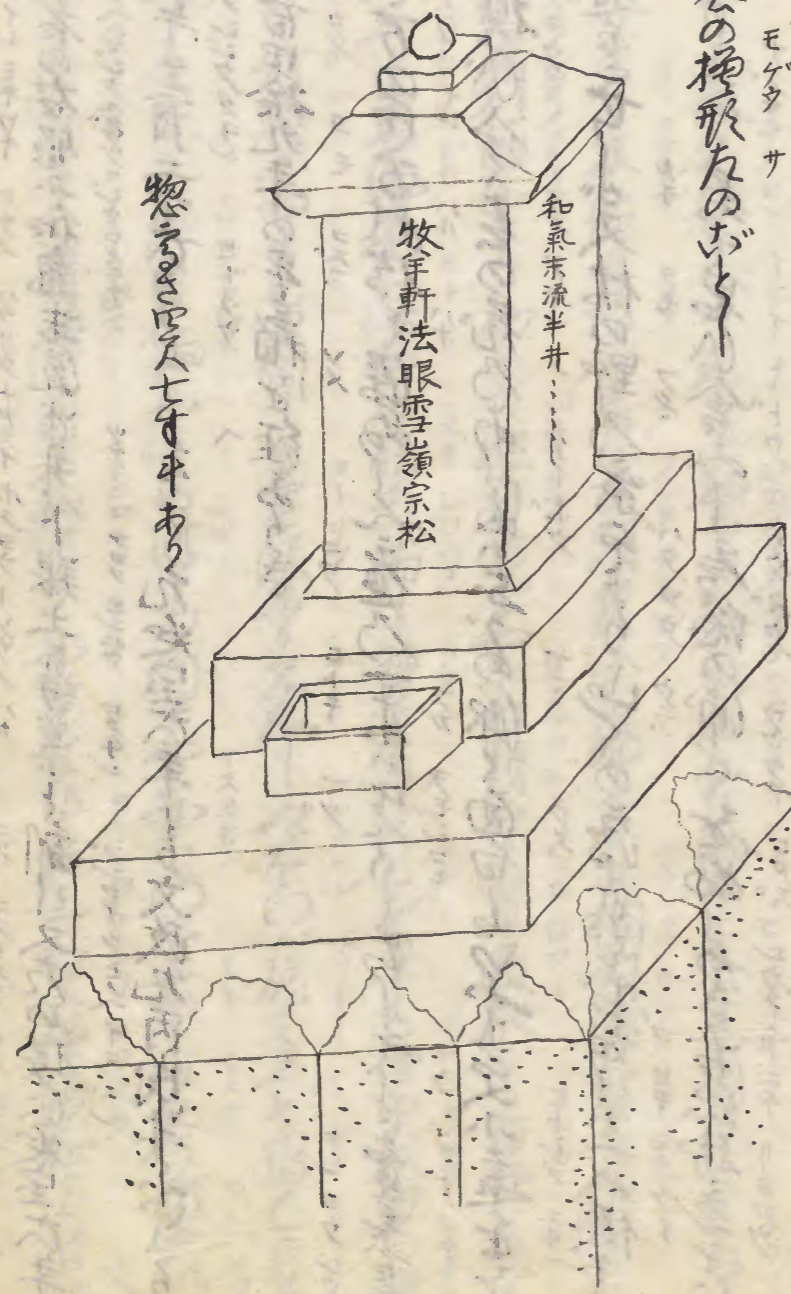 モゲウ サ
の摸形左のごとし
和氣末流半井……
牧羊軒法眼雪嶺宗松
惣高さ四尺七寸斗あり